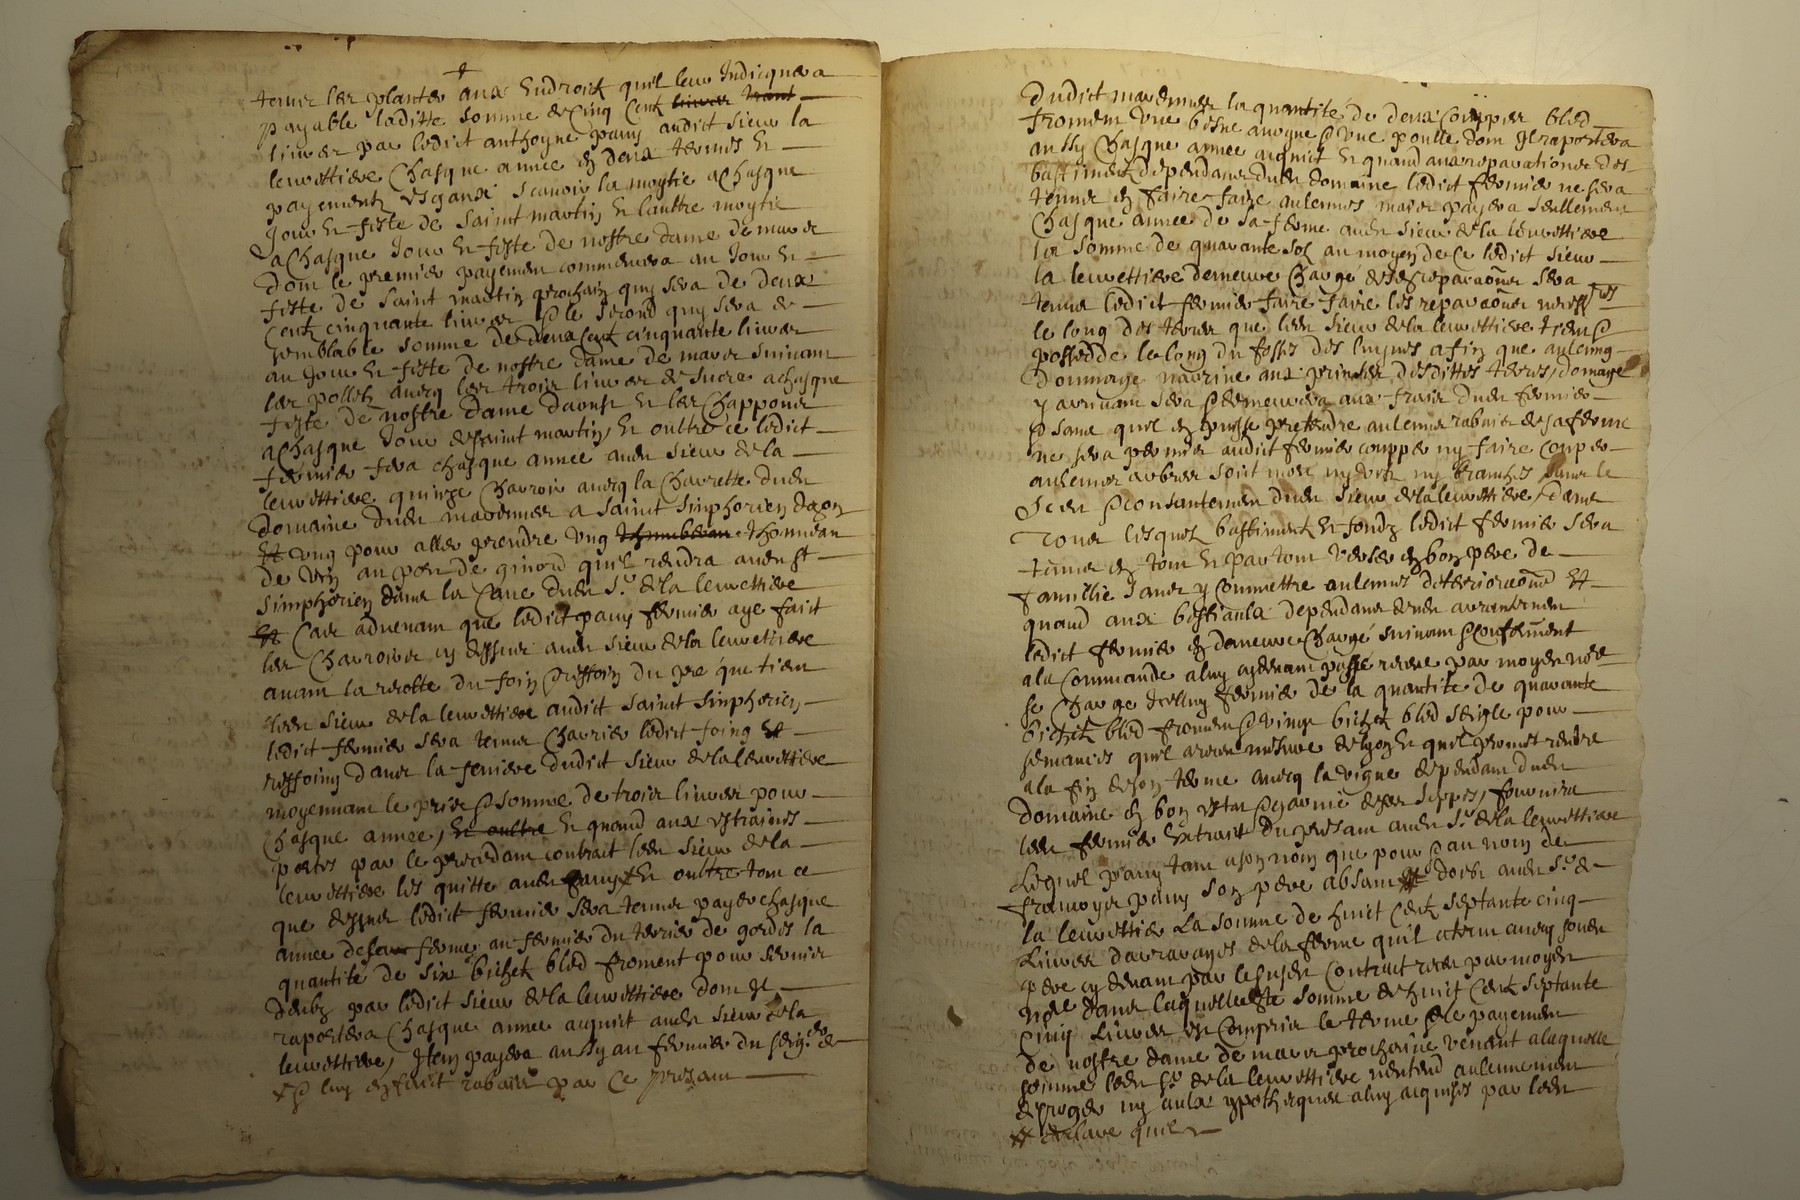 tenir les planter aux Endroict quil leur Indicquera
payable laditte somme de Cinq Centz livres
livres par ledict anthoyne pauy audict sieur la
leurettiere Chasque année en deux termes Et
payementz esgaux scavoir la moytie a Chasque
Jour Et feste de saint martin Et lauttre moytie
a Chasque Jour Et feste de nostre dame de mars
dont le premier payement commencera au Jour Et
feste de saint martin prochain quy sera de deux
Centz cinquante livres & le second quy sera de
semblable somme de deux Centz cinquante livres
au Jour Et feste de nostre dame de mars suivant
les polletz avecq les trois livres de sucre a chasque
feste de nostre dame daoust Et les Chappons
a Chasque Jour de saint martin, Et oultre ce ledict
fermier fera chasque année audit sieur de la
leurettiere quinze Charrois avecq la Charrette dudit
domaine dudit maremier a saint simphorien dozon
Et ung pour aller prendre ung thonneau
de vin au port de givord quil rendra audit st
simphorien dans la Cave dudit sr. de la leurettiere
Et Cas advenant que ledict pauy fermier aye faict
les Charrois cy dessus audit sieur de la leurettiere
avant la recolte du foin & reffoin du pré que tient
ledit sieur de la leurettiere audict saint simphorien
ledict fermier sera tenu Charrier ledict foing Et
reffoing dans la feniere dudict sieur de la leurettiere
moyennant le pris & somme de trois livres pour
Chasque année, Et oultre Et quand aux estraines
portes par le precedant contrait ledit sieur de la
leurettiere les quitte audit pauy Et oultre tout ce
que dessus ledict fermier sera tenu payer chasque
année de ferme au fermier du terrier de gordes la
quantité de six bichetz bled froment pour servis
deubz par ledict sieur de la leurettiere dont Il
raportera Chasque année acquict audit sieur de la
leurettiere, Item payera aussy au fermier du seigr. de
& luy en faict rabais par Ce presant
dudict maremier la quantité de deux Couppes bled
froment une besne avoyne & une poulle dont Il raportera
aussy Chasque année acquict Et quand aux reparations des
bastiments dependants dudit domaine ledict fermier ne sera
tenu en faire faire aulcunes mais payera seullement
Chasque année de sa ferme audit sieur de la leurettiere
la somme de quarante solz au moyen de Ce ledict sieur
la leurettiere demeure Chargé desdites reparaons sera
tenu ledict fermier faire faire les reparaons necess.res
le long des terres que ledit sieur de la leurettiere tient &
possedde le long du fosses des lugnes afin que aulcung
dommage narrive aux prinses desdittes terres, domage
y arrivant sera & demeurera aux frais dudit fermier
& sans quil en puisse pretendre aulcung rabais de sa ferme
ne sera permis audict fermier coupper ny faire couper
aulcuns arbres soit mort ny vert ny branches sans le
sceu & consantement dudit sieur de la leurettiere, dans
Tous lesquelz bastimentz Et fondz ledict fermier sera
tenu en tout Et par tout verser en bon pere de
famillie sans y Commettre aulcunes deterioraons Et
quand aux bestiaulx dependants dudit arrantement
ledict fermier en demeure Chargé suivant & conformemt
a la Commande a luy cydevant passé receue par moyen nore
se Charge Icelluy fermier de la quantité de quarante
bichetz bled froment & vingt bichetz bled seigle pour
semances quil a receu mesure de lyon Et quil promet rendre
a la fin de son terme avecq la vigne dependant dudit
domaine en bon estat & garnie de ses seppes, fournira
ledit fermier Extrait du presant audit sr. de la leurettiere
Lequel pauy tant a son nom que pour & au nom de
francoys pauy son pere absant doibt audit sr. de
la leurettiere La somme de huict Centz septante cinq
Livres darrerages de la ferme quil a tenu avecq sondit
pere cy devant par le susdit Contract receu par moyen
nore dans laquelle somme de huict Centz septante
cinq Livres est Comprins le terme & le payement
de nostre dame de mars prochaine venant a laquelle
somme ledit sr. de la leurettiere nentend aulcunement
desroger ny aulx ypotheques a luy acquises par ledit
declare quil